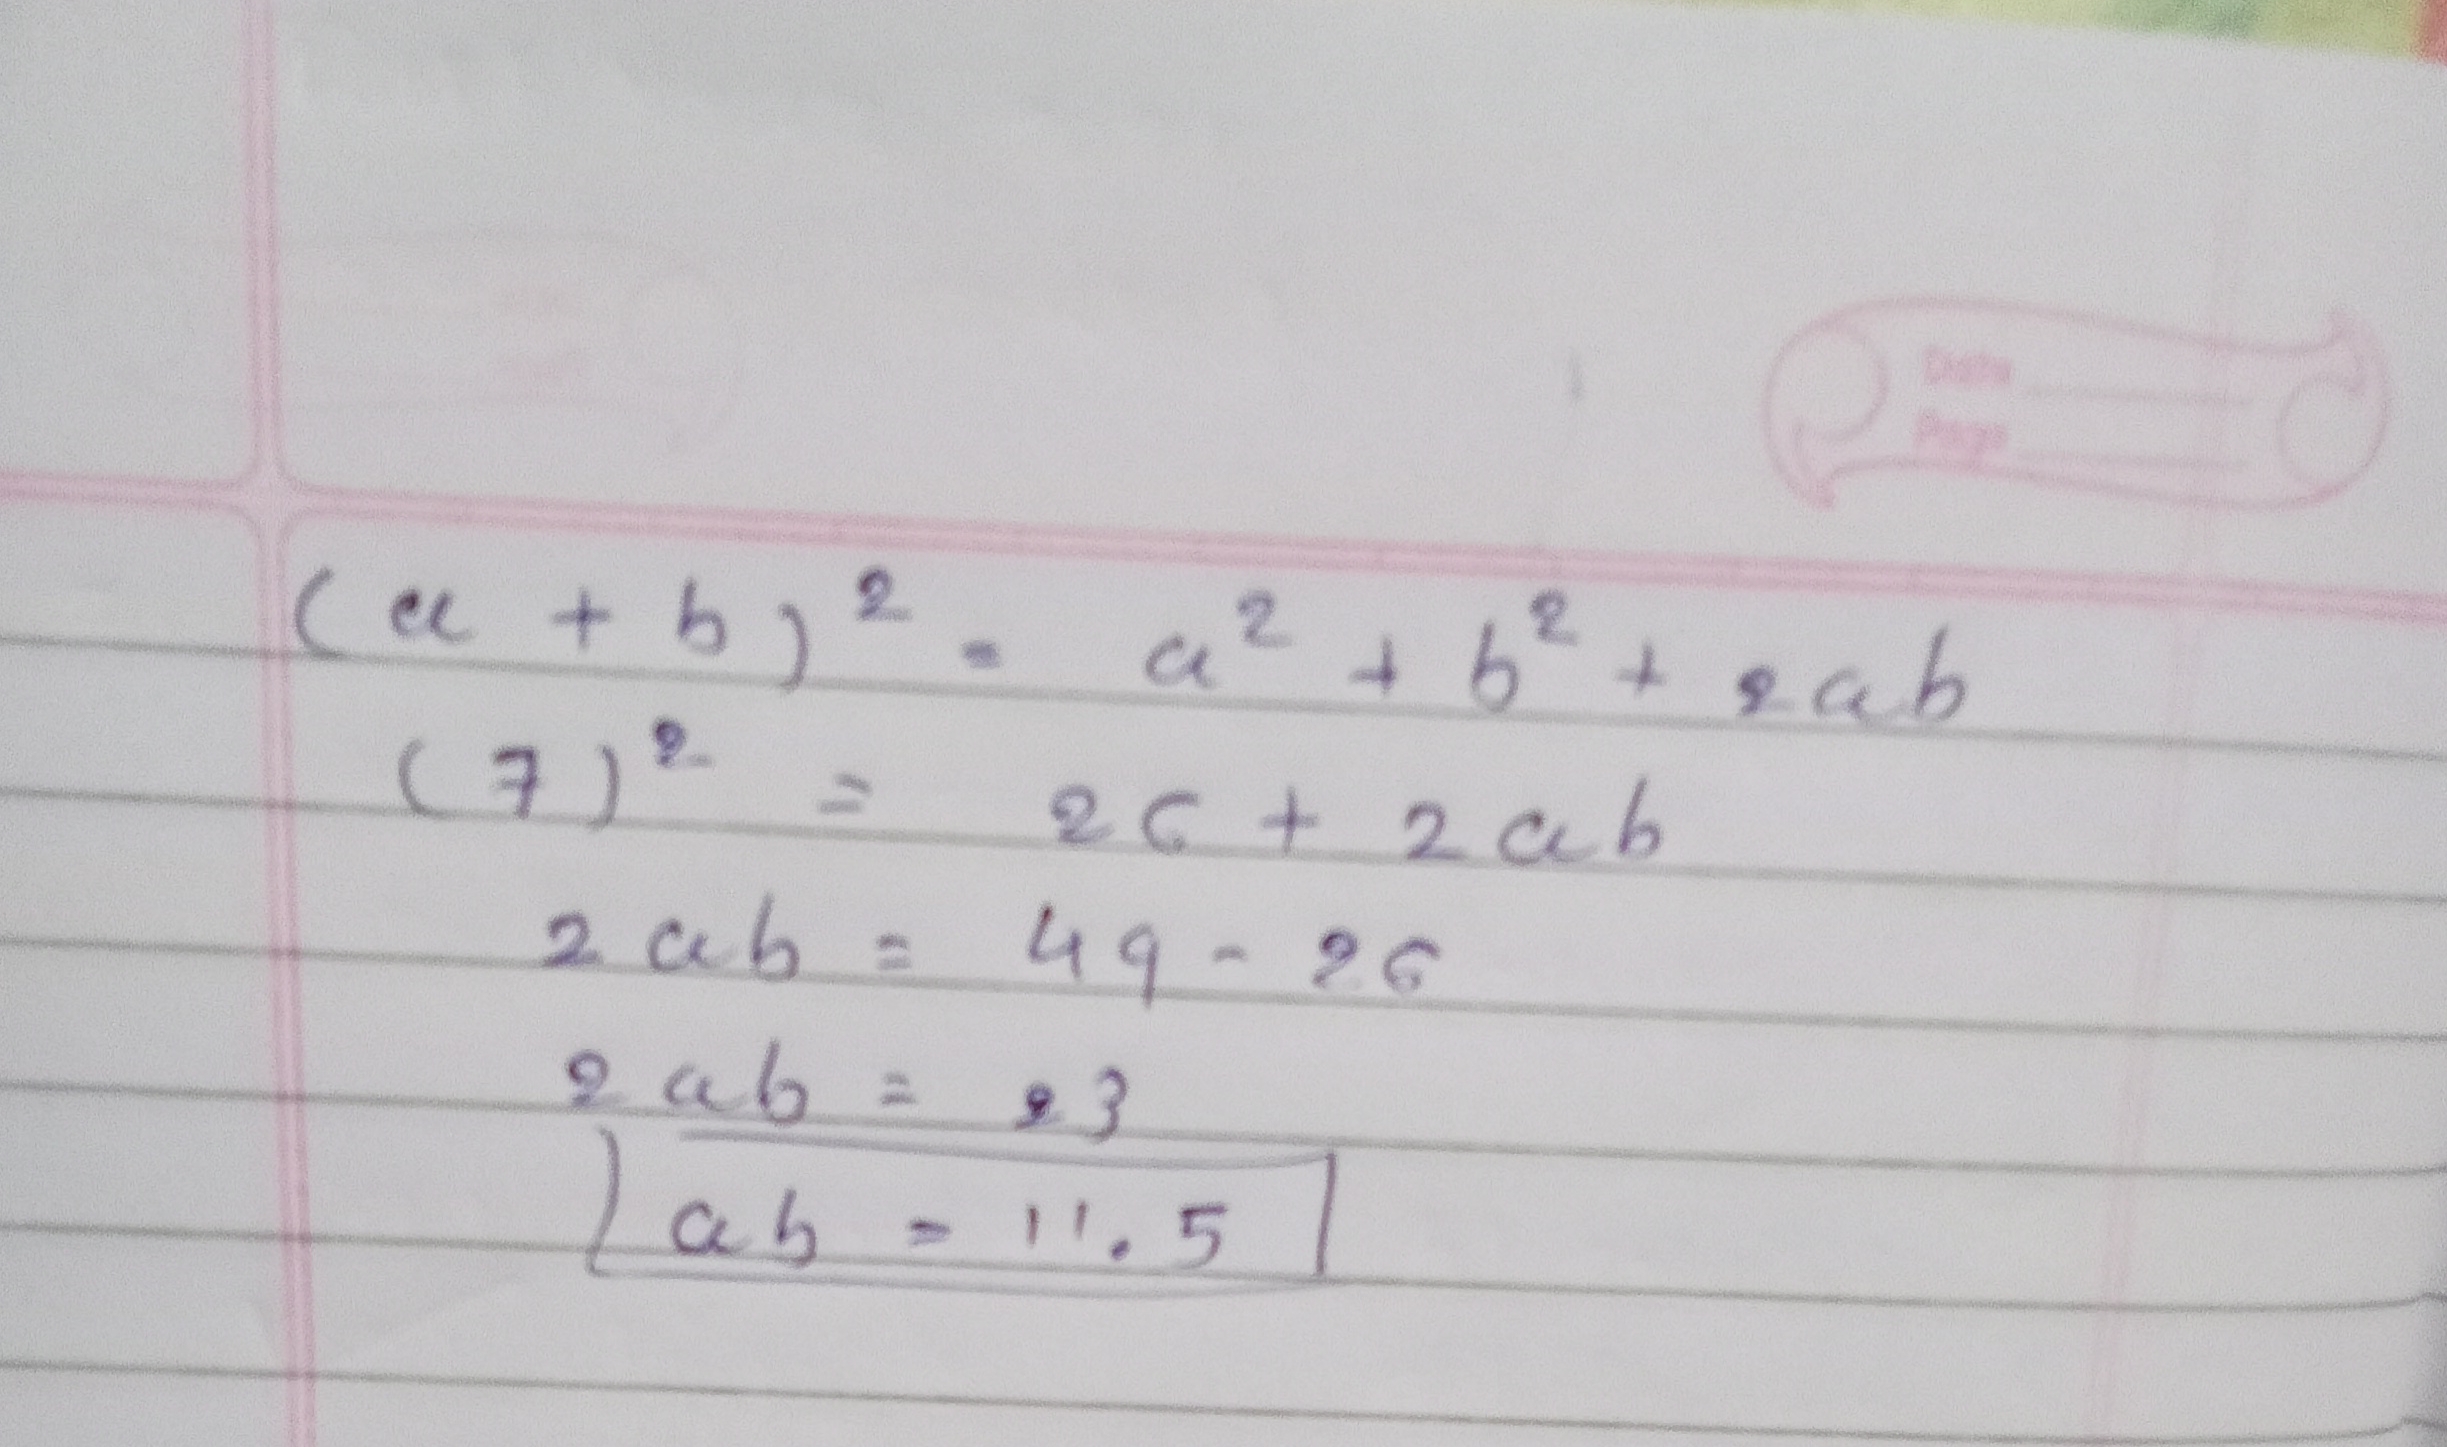 Date
Page
(a + b)² = a² + b² + 2ab
(7)² = 26 + 2ab
2ab = 49 - 26
2ab = 23
ab = 11.5